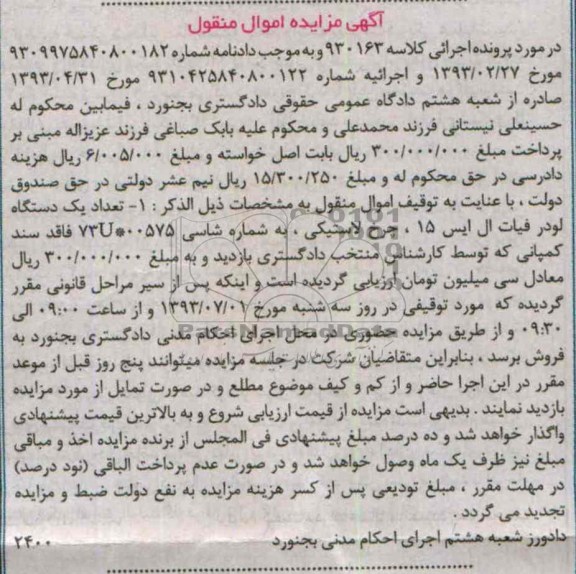 آگهی مزایده اموال منقول
در مورد پرونده اجرائی کلاسه ۹۳۰۱۶۳ و به موجب دادنامه شماره ۹۳۰۹۹۷۵۸۴۰۸۰۰۱۸۲
مورخ ۱۳۹۳/۰۲/۲۷ و اجرائیه شماره ۹۳۱۰۴۲۵۸۴۰۸۰۰۱۲۲ مورخ ۱۳۹۳/۰۴/۳۱
صادره از شعبه هشتم دادگاه عمومی حقوقی دادگستری بجنورد ، فیمابین محکوم له
حسینعلی نیستانی فرزند محمدعلی و محکوم علیه بابک صباغی فرزند عزیزاله مبنی بر
پرداخت مبلغ ۳۰۰/۰۰۰/۰۰۰ ریال بابت اصل خواسته و مبلغ ۶/۰۰۵/۰۰۰ ریال هزینه
دادرسی در حق محکوم له و مبلغ ۱۵/۳۰۰/۲۵۰ ریال نیم عشر دولتی در حق صندوق
دولت ، با عنایت به توقیف اموال منقول به مشخصات ذیل الذکر : ۱- تعداد یک دستگاه
لودر فیات ال ایس ۱۵ ، چرخ لاستیکی ، به شماره شاسی ۷۳U*۰۰۵۷۵ فاقد سند
کمپانی که توسط کارشناس منتخب دادگستری بازدید و به مبلغ ۳۰۰/۰۰۰/۰۰۰ ریال
معادل سی میلیون تومان ارزیابی گردیده است و اینکه پس از سیر مراحل قانونی مقرر
گردیده که مورد توقیفی در روز سه شنبه مورخ ۱۳۹۳/۰۷/۰۱ و از ساعت ۰۹:۰۰ الی
۰۹:۳۰ و از طریق مزایده حضوری در محل اجرای احکام مدنی دادگستری بجنورد به
فروش برسد ، بنابراین متقاضیان شرکت در جلسه مزایده میتوانند پنج روز قبل از موعد
مقرر در این اجرا حاضر و از کم و کیف موضوع مطلع و در صورت تمایل از مورد مزایده
بازدید نمایند . بدیهی است مزایده از قیمت ارزیابی شروع و به بالاترین قیمت پیشنهادی
واگذار خواهد شد و ده درصد مبلغ پیشنهادی فی المجلس از برنده مزایده اخذ و مباقی
مبلغ نیز ظرف یک ماه وصول خواهد شد و در صورت عدم پرداخت الباقی (نود درصد)
در مهلت مقرر ، مبلغ تودیعی پس از کسر هزینه مزایده به نفع دولت ضبط و مزایده
تجدید می گردد .
دادورز شعبه هشتم اجرای احکام مدنی بجنورد ۲۴۰۰